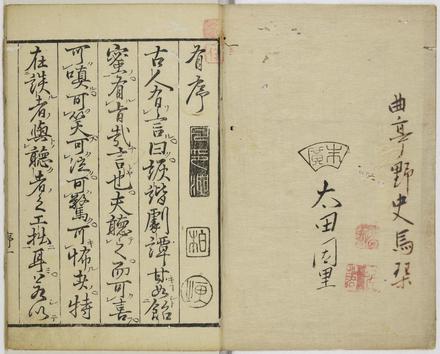 曲亭野史馬琴
太田
有序
柏
古人有言曰詼諧劇譚甘如飴
蜜有旨哉言也夫聽之而可喜
可嗔可笑可泣可驚可怖特
在談者與聽者之工拙耳若以
序一